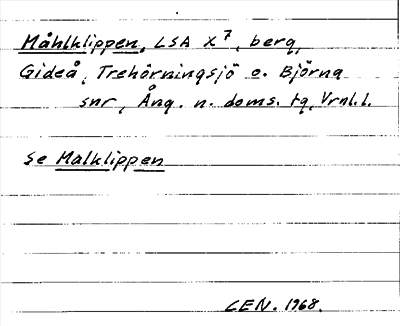 Måhlklippen, LSA X7, berg,
Gideå, Trehörningsjö o. Björna
snr, Ång. n. doms. tg, Vrnl.l.
Se Malklippen
CEN. 1968.